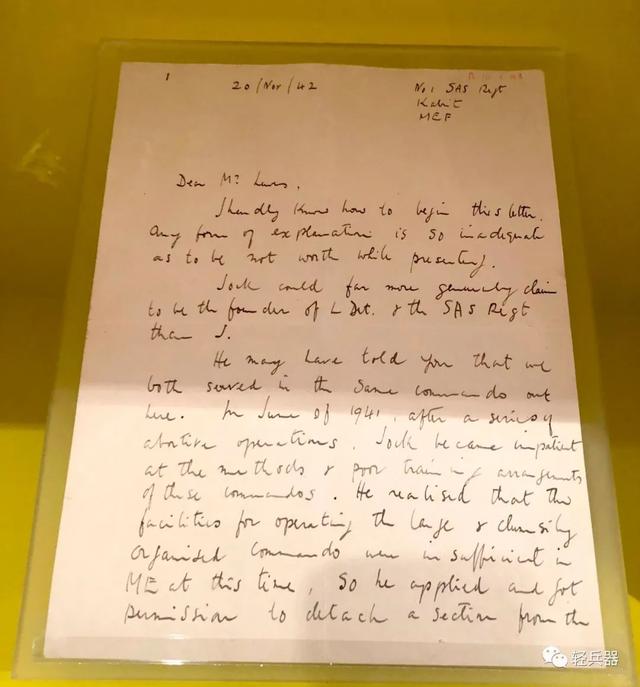 1
20/Nov/42
No 1 SAS Regt
Kabrit
MEF
Dear Mr Lewes,
I hardly know how to begin this letter.
Any form of explanation is so inadequate
as to be not worth while presenting.
Jock could far more genuinely claim
to be the founder of L Det. & the SAS Regt
than I.
He may have told you that we
both served in the same commando out
here. In June of 1941, after a series of
abortive operations, Jock became impatient
at the methods & poor training arrangements
of these commandos. He realised that the
facilities for operating the large & clumsily
organised commando were insufficient in
ME at this time, so he applied and got
permission to detach a section from the
轻兵器